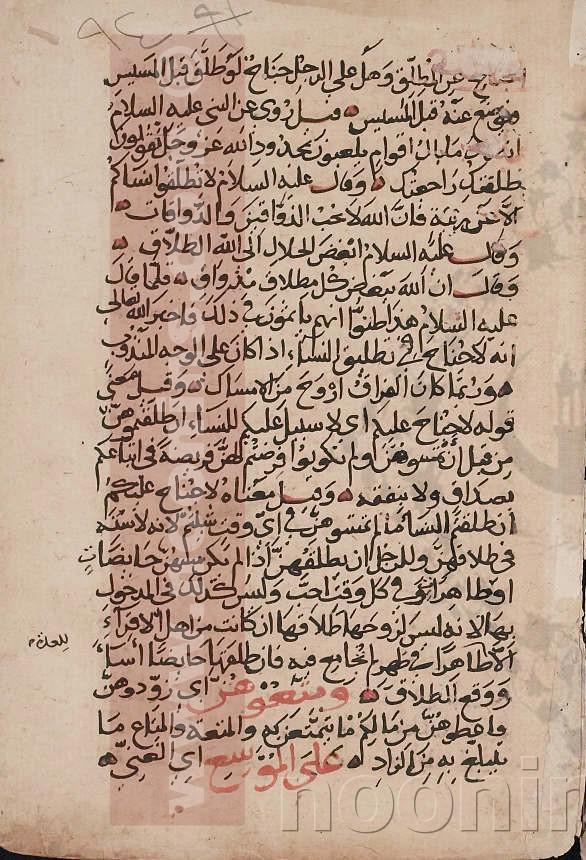 الجناح عن المطلق وهل على الرجل جناح لو طلق قبل المسيس
عنه قبل المسيس وقيل روى عن النبى عليه السلام
ما بال اقوام يلعبون بحدود الله عز وجل يقولون
طلقتك راجعتك وقال عليه السلام لا تطلقوا نساكم
الا عن ريبة فان الله لا يحب الذواقين ولا الذواقات
وقال عليه السلام ابغض الحلال الى الله الطلاق
وقال ان الله يبغض كل مطلاق مذواق فلما قال
عليه السلام هذا ظنوا انهم ياثمون فى ذلك فاخبر الله تعالى
انه لا جناح فى تطليق النساء اذا كان على الوجه المندوب
وربما كان الفراق اروح من الامساك وقيل معنى
قوله لا جناح عليكم اى لا سبيل عليكم للنساء ان طلقتموهن
من قبل ان تمسوهن ولم تكونوا فرضتم لهن فريضة فى اتباعكم
بصداق ولا نفقة وقيل معناه لا جناح عليكم
ان طلقتم النساء ما لم تمسوهن فى اى وقت شئتم لانه لا سنة
فى طلاقهن وللرجل ان يطلقهن اذا لم يكن مسهن حايضات
او طاهرات فى كل وقت احب وليس كذلك فى المدخول
بها لانه ليس لزوجها طلاقها ان كانت من اهل الاقراء
الا طاهرا فى طهر لم يجامع فيه فان طلقها حايضا اساء
للعدة
ووقع الطلاق ومتعوهن اى زودوهن
واعطوهن من مالكم ما يتمتعن به والمتعة والمتاع ما
يتبلغ به من الزاد على الموسع اى الغنى
noormags